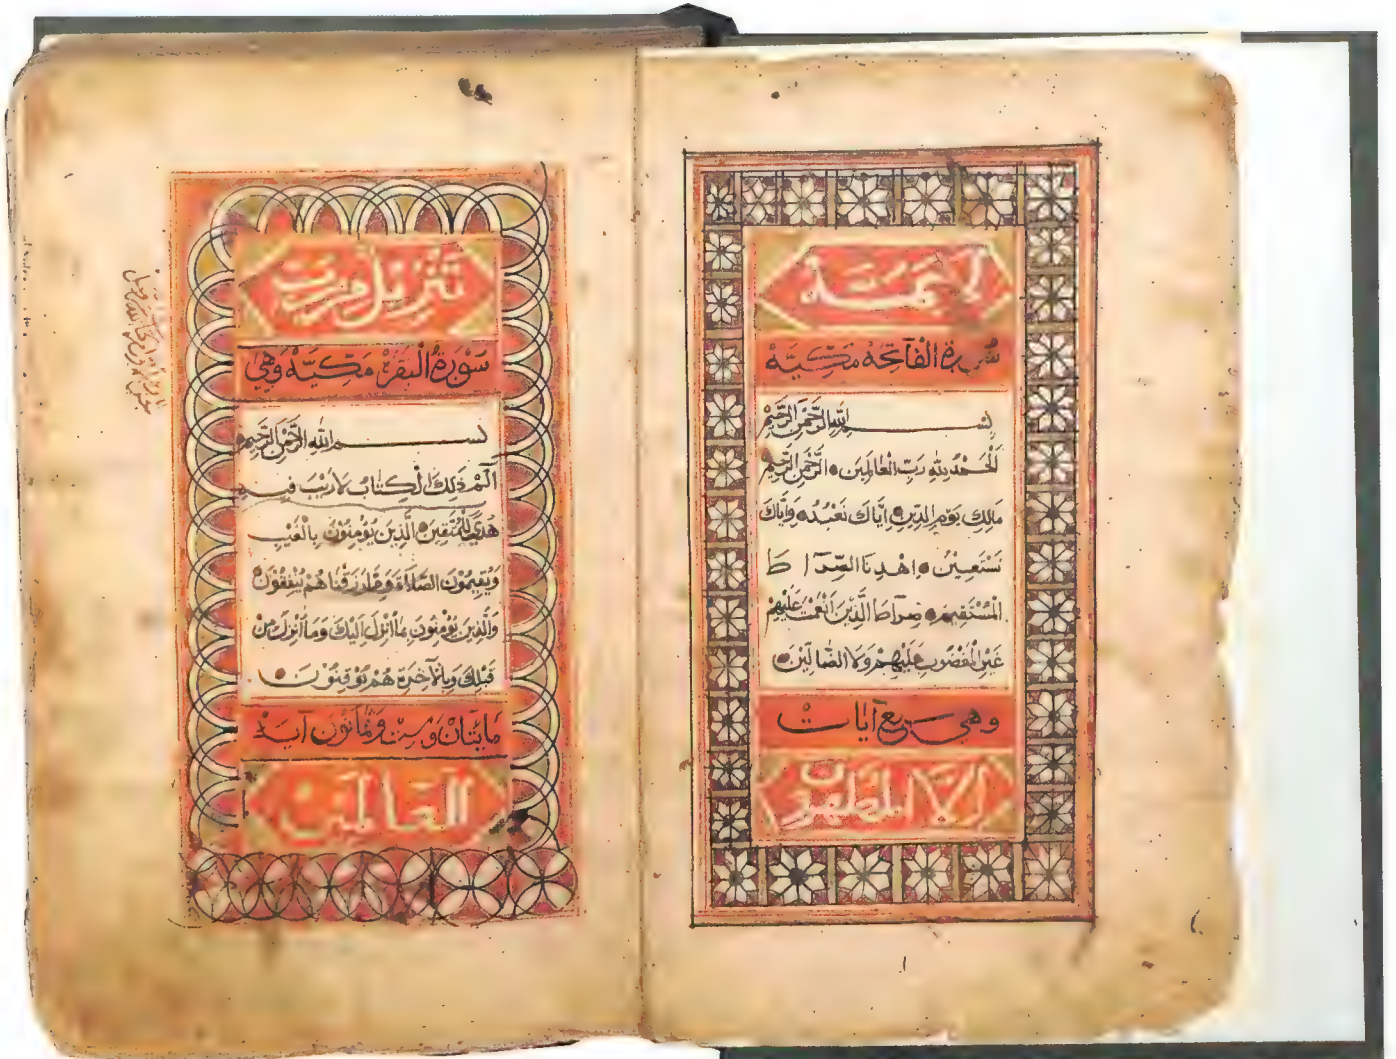 لا يمسه
سورة الفاتحة مكية
بسم الله الرحمن الرحيم
الحمد لله رب العالمين الرحمن الرحيم
مالك يوم الدين اياك نعبد واياك
نستعين اهدنا الصرا ط
المستقيم صراط الذين انعمت عليهم
غير المغضوب عليهم ولا الضالين
وهي سبع آيات
الا المطهرون
تنزيل من رب
سورة البقرة مكية وهي
بسم الله الرحمن الرحيم
آلم ذلك الكتاب لا ريب فيه
هدى للمتقين الذين يؤمنون بالغيب
ويقيمون الصلاة ومما رزقناهم ينفقون
والذين يؤمنون بما أنزل اليك وما أنزل من
قبلك وبالآخرة هم يوقنون
مائتان وست وثمانون آية
العالمين